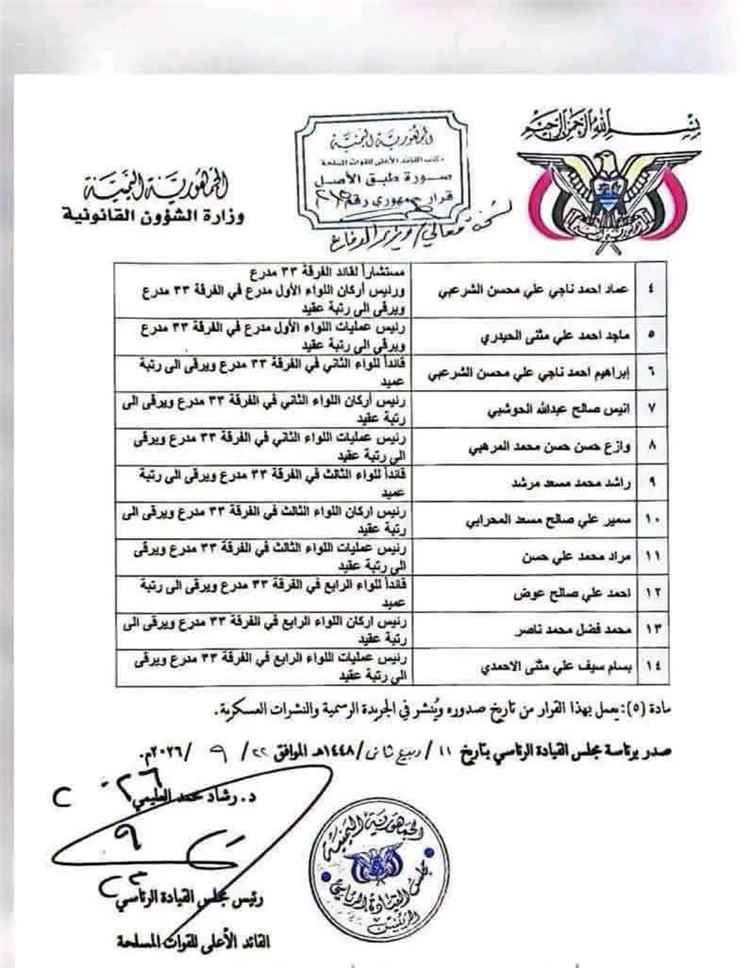 بسم الله الرحمن الرحيم
الجمهورية اليمنية
وزارة الشؤون القانونية
الجمهورية اليمنية
مكتب القائد الأعلى للقوات المسلحة
صورة طبق الأصل
قرار جمهوري رقم
نسخة معالي / وزير الدفاع
٤ عماد احمد ناجي علي محسن الشرعبي مستشاراً لقائد الفرقة ٣٣ مدرع
ورئيس أركان اللواء الأول مدرع في الفرقة ٣٣ مدرع
ويرقى الى رتبة عقيد
٥ ماجد احمد علي مثنى الحيدري رئيس عمليات اللواء الأول مدرع في الفرقة ٣٣ مدرع
ويرقى الى رتبة عقيد
٦ إبراهيم احمد ناجي علي محسن الشرعبي قائداً للواء الثاني في الفرقة ٣٣ مدرع ويرقى الى رتبة
عميد
٧ انيس صالح عبدالله الحوشبي رئيس أركان اللواء الثاني في الفرقة ٣٣ مدرع ويرقى الى
رتبة عقيد
٨ وازع حسن حسن محمد المرهبي رئيس عمليات اللواء الثاني في الفرقة ٣٣ مدرع ويرقى
الى رتبة عقيد
٩ راشد محمد مسعد مرشد قائداً للواء الثالث في الفرقة ٣٣ مدرع ويرقى الى رتبة
عميد
١٠ سمير علي صالح مسعد المحرابي رئيس اركان اللواء الثالث في الفرقة ٣٣ مدرع ويرقى الى
رتبة عقيد
١١ مراد محمد علي حسن رئيس عمليات اللواء الثالث في الفرقة ٣٣ مدرع ويرقى
الى رتبة عقيد
١٢ احمد علي صالح عوض قائداً للواء الرابع في الفرقة ٣٣ مدرع ويرقى الى رتبة
عميد
١٣ محمد فضل محمد ناصر رئيس اركان اللواء الرابع في الفرقة ٣٣ مدرع ويرقى الى
رتبة عقيد
١٤ بسام سيف علي مثنى الاحمدي رئيس عمليات اللواء الرابع في الفرقة ٣٣ مدرع ويرقى
الى رتبة عقيد
مادة (٥): يعمل بهذا القرار من تاريخ صدوره ويُنشر في الجريدة الرسمية والنشرات العسكرية.
صدر برئاسة مجلس القيادة الرئاسي بتاريخ ١١ / ربيع ثاني / ١٤٤٨هـ الموافق ٢٢ / ٩ / ٢٠٢٦م.
د. رشاد محمد العليمي
رئيس مجلس القيادة الرئاسي
القائد الأعلى للقوات المسلحة
الجمهورية اليمنية
مجلس القيادة الرئاسي